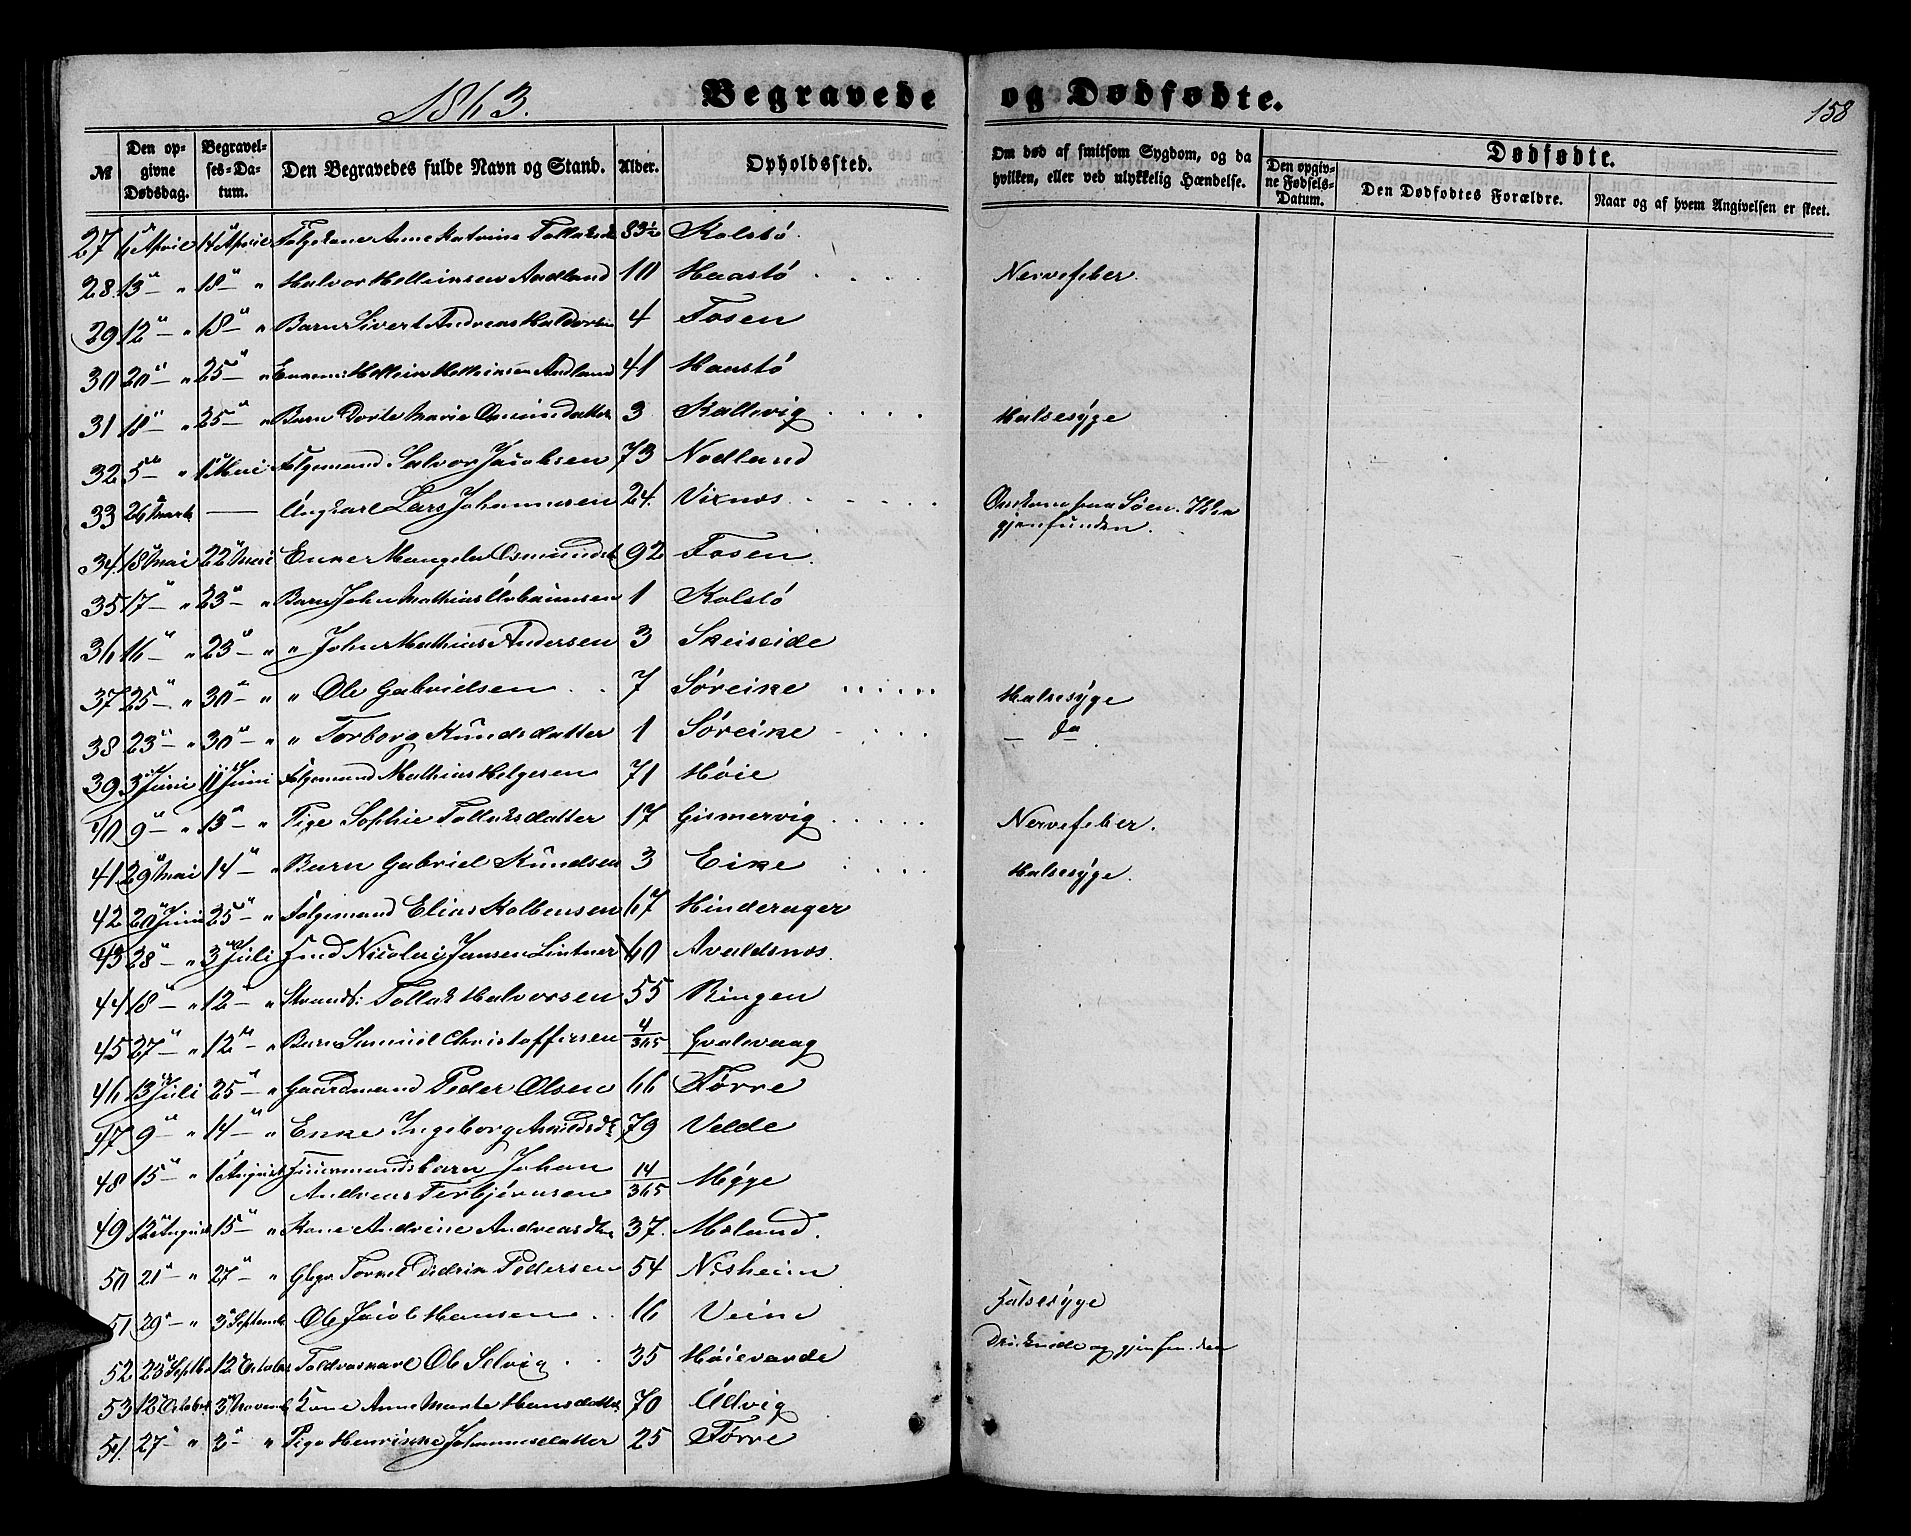 1863.
Begravede og Dødfødte.
158
№
Den opgivne Dødsdag.
Begravelses-Datum.
Den Begravedes fulde Navn og Stand.
Alder.
Opholdssted.
Om død af smitsom Sygdom, og da hvilken, eller ved ulykkelig Hændelse.
Dødfødte.
Den opgivne Fødsels-Datum.
Den Dødfødtes Forældre.
Naar og af hvem Angivelsen er skeet.
27 6 April 14 April Anne Katrine 83½ Kolstø
28. 13 — " 18 — " Halvor Helliesen Andland 18 Haastø Nervefeber.
29 12 — " 18 — " Barn Sivert Andreas Haldorsen 4 Fosen
30 20 — " 25 — " Hellesen Andland 41 Haastø
31 18 — " 25 — " Barn Dorte Marie 3 Kallevig Halsesyge
32 5 " 1 Mai Følgemand Salvor Jacobsen 73 Nodland
33 26 Marts — Ungkarl Lars Johannesen 24. Vixnæs gjenfunden.
34. 18 Mai 22 Mai Enke Mangela Osmundsd 92 Fosen.
35 17 — " 23 — " Barn John Mathias 1 Kolstø
36 16 — " 23 — " " John Mathias Andersen 3 Skeiseide
37 25 — " 30 — " " Ole Gabrielsen 7 Søreike Halsesyge
38 23 — " 30 — " " Torborg Knudsdatter 1 Søreike — do
39 3 Juni 11 Juni Følgemand Mathias Helgesen 71 Høie
40 9 — " 13 — " Pige Sophie Tollaksdatter 17 Gismervig Nervefeber.
41 29 Mai 14 — " Barn Gabriel Knudsen 3 Eike Halsesyge.
42 20 Juni 25 — " Følgemand Elias Kolbensen 67 Hinderager
43 28 — " 3 Juli Nicolai Jansen Lintner 60 Avaldsnæs.
44 18 — " 12 — " Strands: Tollak Halvorsen 55 Ringen
45 27 — " 12 — " Barn Samuel Christoffersen 4/365 Gvalevaag
46 13 Juli 25 — " Gaardmand Peder Olsen 66 Førre
47 9 — " 14 — " Enke Ingeborg 79 Velde
48 15 — " 1 August barn Johan
Andreas Torbjørnsen 14/365 Møgge
49 12 August 15 — " Kone Andrine Andreasdtr 37. Mæland.
50 21 — " 27 — " Tormod Didrik Pedersen 54 Nisheim
51 29 — " 3 September Ole Jacob Hansen 16 Veine Halsesyge
52 23 Septbr 12 October Ole Selvig 35 Høievarde Druknede og gjenfunden
53 12 October 3 Novemb Kone Anne Marte Hansdatter 70 Udvig
54. 27 " 2 — " Pige Henrikke Johannesdatter 25 Førre